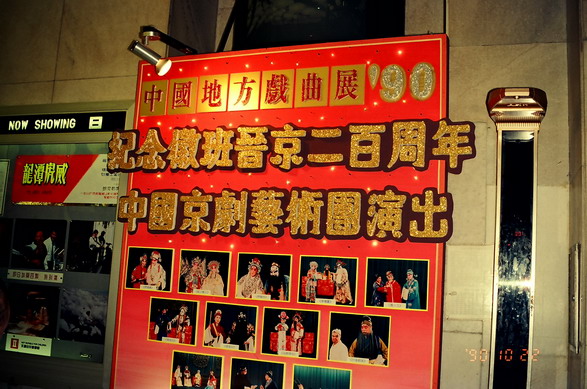 中國地方戲曲展'90
紀念徽班晉京二百周年
中國京劇藝術團演出
NOW SHOWING
龍潭虎威
'90 10 22